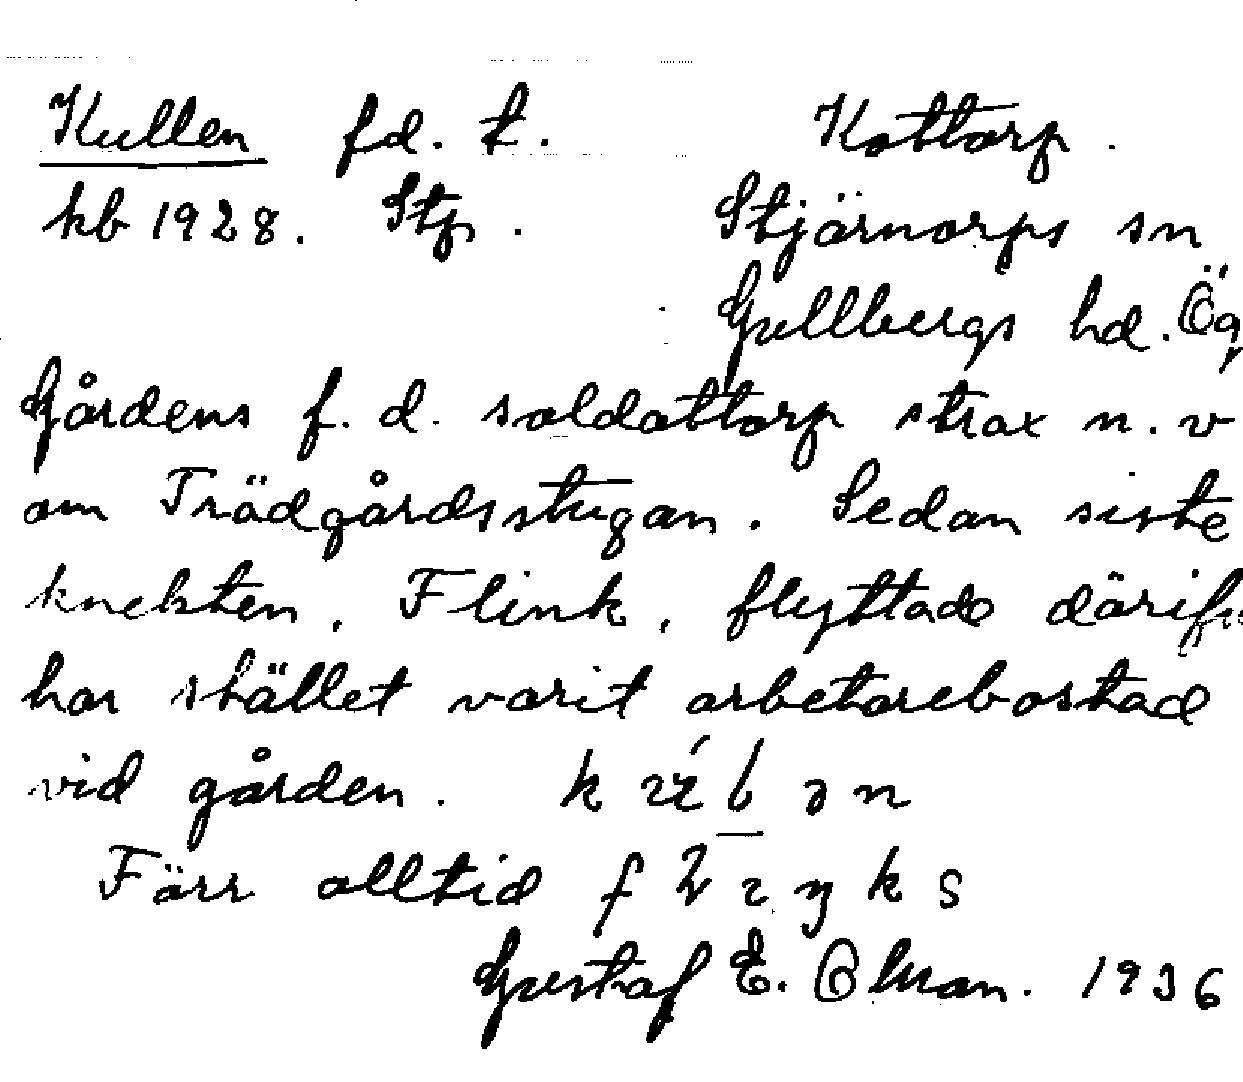 Kullen fd. t. Kottorp.
kb 1928. Stp. Stjärnorps sn
Gullbergs hd. Ög
Gårdens f. d. soldattorp strax n. v
om Trädgårdsstugan. Sedan siste
knekten, Flink, flyttade därifr
har stället varit arbetarebostad
vid gården. k
Förr alltid
Gustaf E. Ohman. 1936